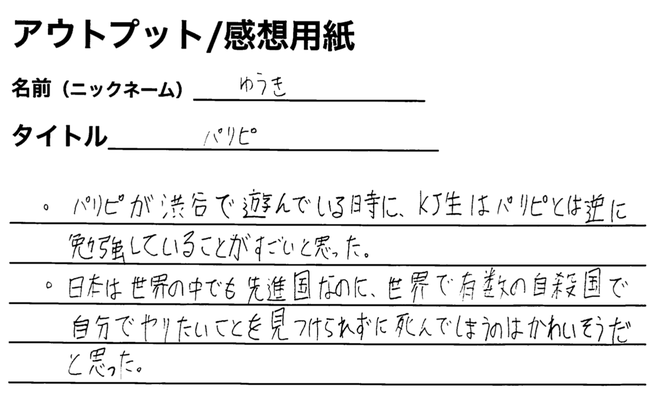 アウトプット/感想用紙
名前（ニックネーム） ゆうき
タイトル パリピ
。パリピが渋谷で遊んでいる日時に、KJ生はパリピとは逆に
勉強していることがすごいと思った。
。日本は世界の中でも先進国なのに、世界で有数の自殺国で
自分でやりたいことを見つけられずに死んでしまうのはかわいそうだ
と思った。